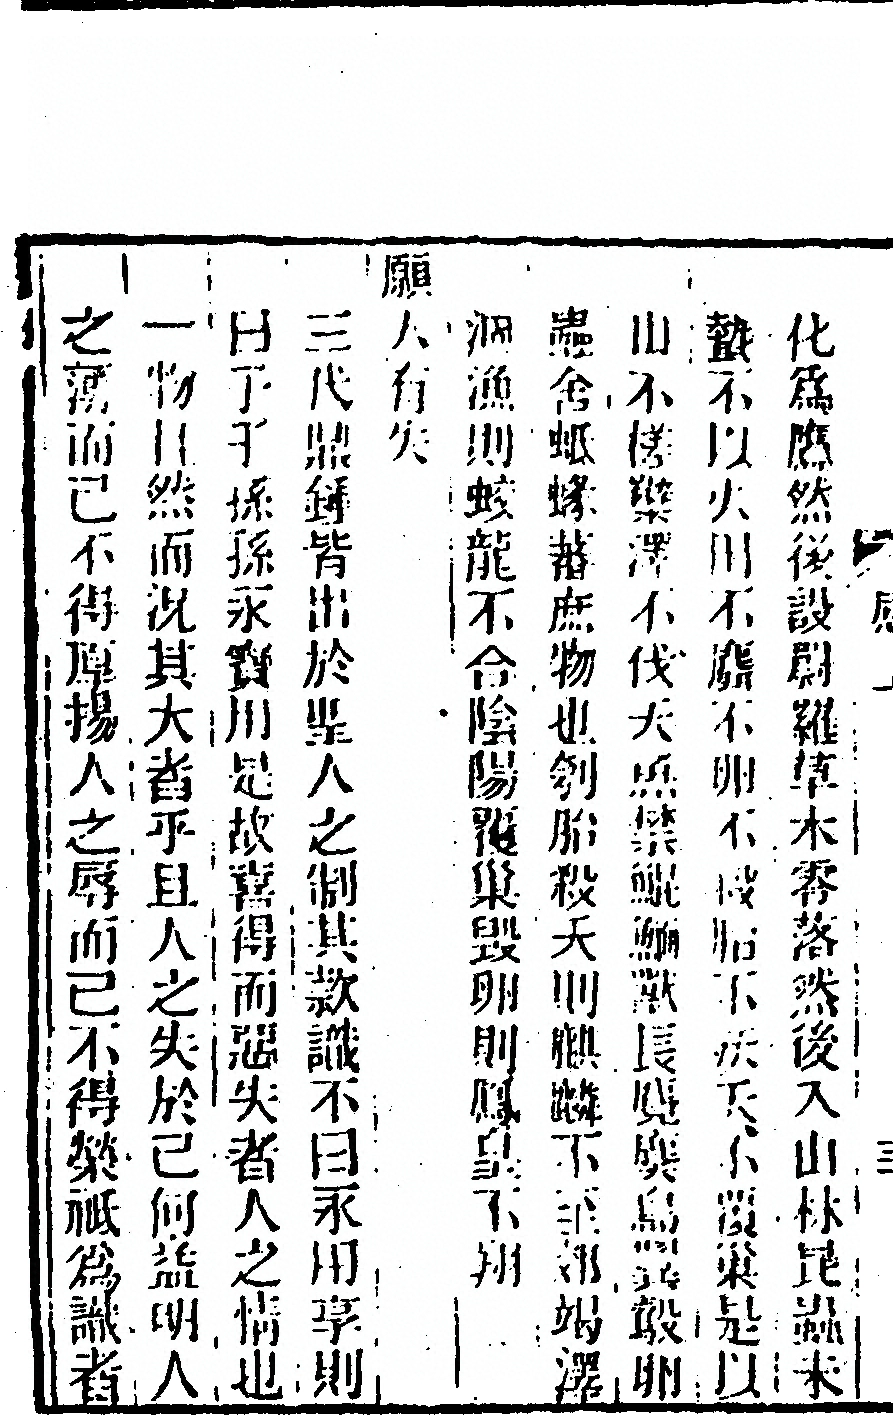 化爲鷹然後設罻羅草木零落然後入山林昆蟲未
蟄不以火田不麛不卵不殺胎不殀夭不覆巢是以
山不槎櫱澤不伐夭魚禁鯤鮞獸長麑麌鳥翼鷇卵
蟲舍蚳蝝蕃庶物也刳胎殺夭則麒麟不至郊竭澤
涸漁則蛟龍不合陰陽覆巢毀卵則鳳皇不翔
願人有失
三代鼎鍾皆出於聖人之制其款識不曰永用享則
曰子子孫孫永寶用是故喜得而惡失者人之情也
一物且然而況其大者乎且人之失於己何益明人
之薄而己不得厚揚人之辱而己不得榮祗爲識者